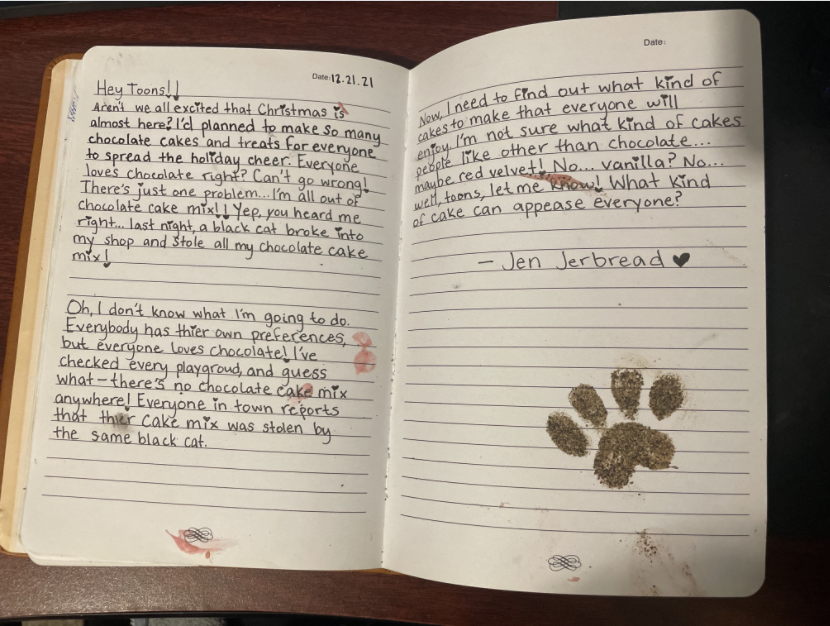 Date: 12.21.21
Hey Toons!!
Aren't we all excited that Christmas is
almost here? I'd planned to make so many
chocolate cakes and treats for everyone
to spread the holiday cheer. Everyone
loves chocolate right? Can't go wrong!
There's just one problem... I'm all out of
chocolate cake mix!! Yep, you heard me
right... last night, a black cat broke into
my shop and stole all my chocolate cake
mix!
Oh, I don't know what I'm going to do.
Everybody has thier own preferences,
but everyone loves chocolate! I've
checked every playgroud, and guess
what - there's no chocolate cake mix
anywhere! Everyone in town reports
that thier cake mix was stolen by
the same black cat.
Date:
Now, I need to find out what kind of
cakes to make that everyone will
enjoy. I'm not sure what kind of cakes
people like other than chocolate...
maybe red velvet! No... vanilla? No...
well, toons, let me know! What kind
of cake can appease everyone?
- Jen Jerbread ♥